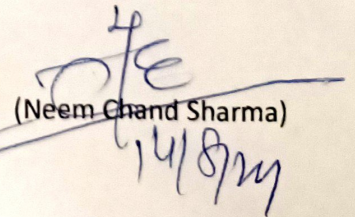 (Neem Chand Sharma)
14/8/24